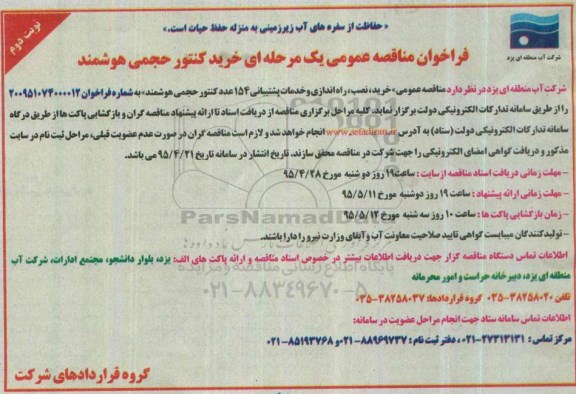 نوبت دوم
« حفاظت از سفره های آب زیرزمینی به منزله حفظ حیات است.»
شرکت آب منطقه ای یزد
فراخوان مناقصه عمومی یک مرحله ای خرید کنتور حجمی هوشمند
شرکت آب منطقه ای یزد در نظر دارد مناقصه عمومی «خرید، نصب، راه اندازی و خدمات پشتیبانی ۱۵۴ عدد کنتور حجمی هوشمند» به شماره فراخوان ۲۰۰۹۵۱۰۷۴۰۰۰۰۱۲
را از طریق سامانه تدارکات الکترونیکی دولت برگزار نماید. کلیه مراحل برگزاری مناقصه از دریافت اسناد تا ارائه پیشنهاد مناقصه گران و بازگشایی پاکت ها از طریق درگاه
سامانه تدارکات الکترونیکی دولت (ستاد) به آدرس www.setadiran.ir انجام خواهد شد و لازم است مناقصه گران در صورت عدم عضویت قبلی، مراحل ثبت نام در سایت
مذکور و دریافت گواهی امضای الکترونیکی را جهت شرکت در مناقصه محقق سازند. تاریخ انتشار در سامانه تاریخ ۹۵/۴/۲۱ می باشد.
- مهلت زمانی دریافت اسناد مناقصه از سایت : ساعت ۱۹ روز دو شنبه مورخ ۹۵/۴/۲۸
- مهلت زمانی ارائه پیشنهاد : ساعت ۱۹ روز دوشنبه مورخ ۹۵/۵/۱۱
- زمان بازگشایی پاکت ها : ساعت ۱۰ روز سه شنبه مورخ ۹۵/۵/۱۲
- تولیدکنندگان میبایست گواهی تایید صلاحیت معاونت آب و آبفای وزارت نیرو را دارا باشند.
اطلاعات تماس دستگاه مناقصه گزار جهت دریافت اطلاعات بیشتر در خصوص اسناد مناقصه و ارائه پاکت های الف: یزد، بلوار دانشجو، مجتمع ادارات، شرکت آب
منطقه ای یزد، دبیرخانه حراست و امور محرمانه
تلفن ۳۸۲۵۸۰۲۰-۰۳۵ گروه قراردادها: ۳۸۲۵۸۰۳۷-۰۳۵
اطلاعات تماس سامانه ستاد جهت انجام مراحل عضویت در سامانه:
مرکز تماس : ۲۷۳۱۳۱۳۱-۰۲۱، دفتر ثبت نام : ۸۸۹۶۹۷۳۷-۰۲۱ و ۸۵۱۹۳۷۶۸-۰۲۱
گروه قراردادهای شرکت
ParsNamadData
پایگاه اطلاع رسانی مناقصه و مزایده
۰۲۱-۸۸۳۴۹۶۷۰-۵